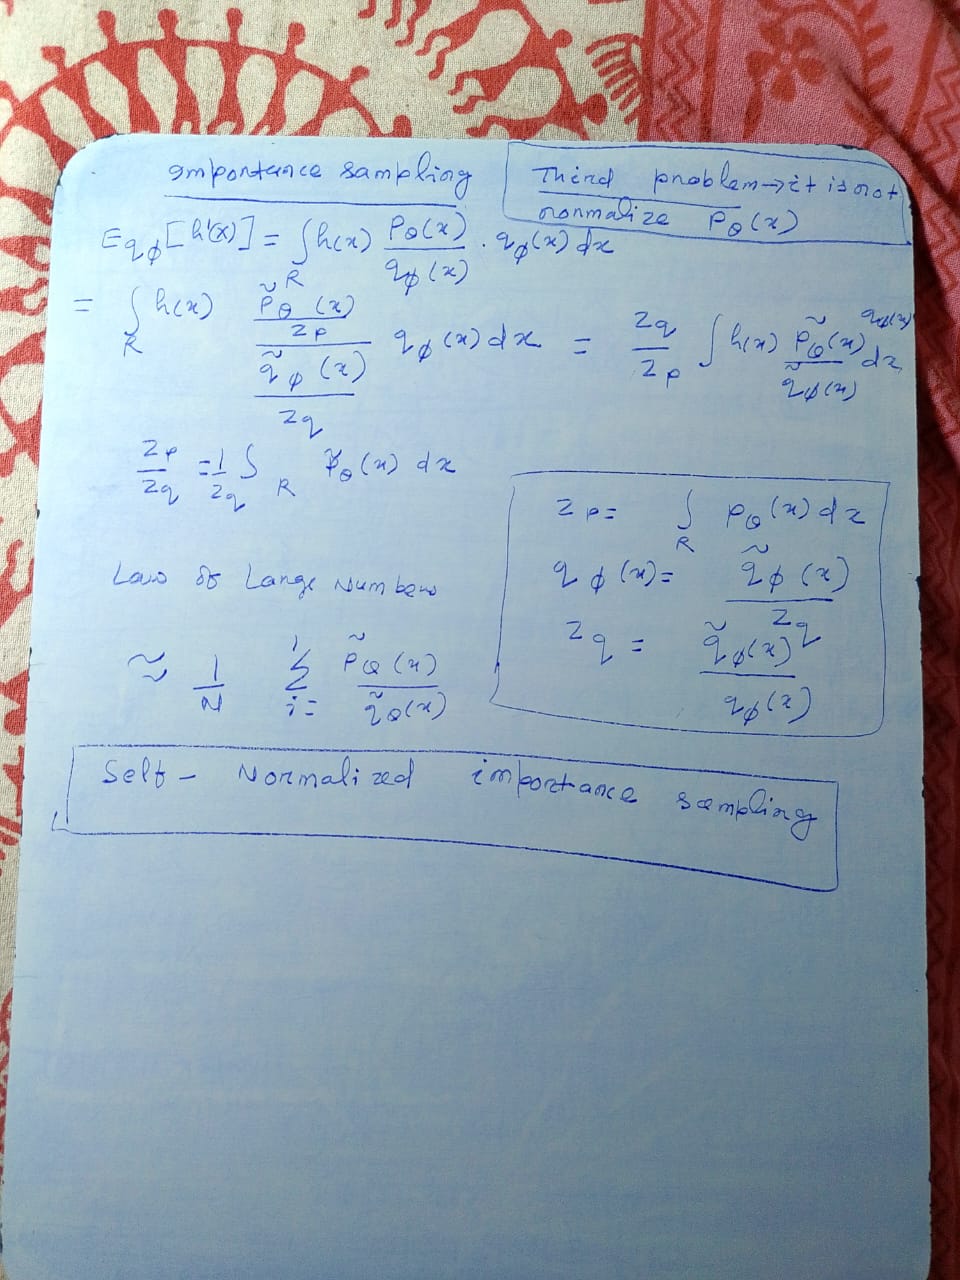 Importance sampling
Third problem → it is not
normalize P_θ(x)
E_{q_ϕ}[h'(x)] = ∫_R h(x) P_θ(x)/q_ϕ(x) · q_ϕ(x) dx
= ∫_R h(x) (p̃_θ(x)/Z_p)/(q̃_ϕ(x)/Z_q) q_ϕ(x) dx = Z_q/Z_p ∫ h(x) p̃_θ(x)/q̃_ϕ(x) q_ϕ(x) dx
Z_p/Z_q = 1/Z_q ∫_R p̃_θ(x) dx
Z_p = ∫_R p_θ(x) dx
q_ϕ(x) = q̃_ϕ(x)/Z_q
Z_q = q̃_ϕ(x)/q_ϕ(x)
Law of Large Numbers
≈ 1/N Σ_{i=} p̃_θ(x)/q̃_θ(x)
Self - Normalized importance sampling